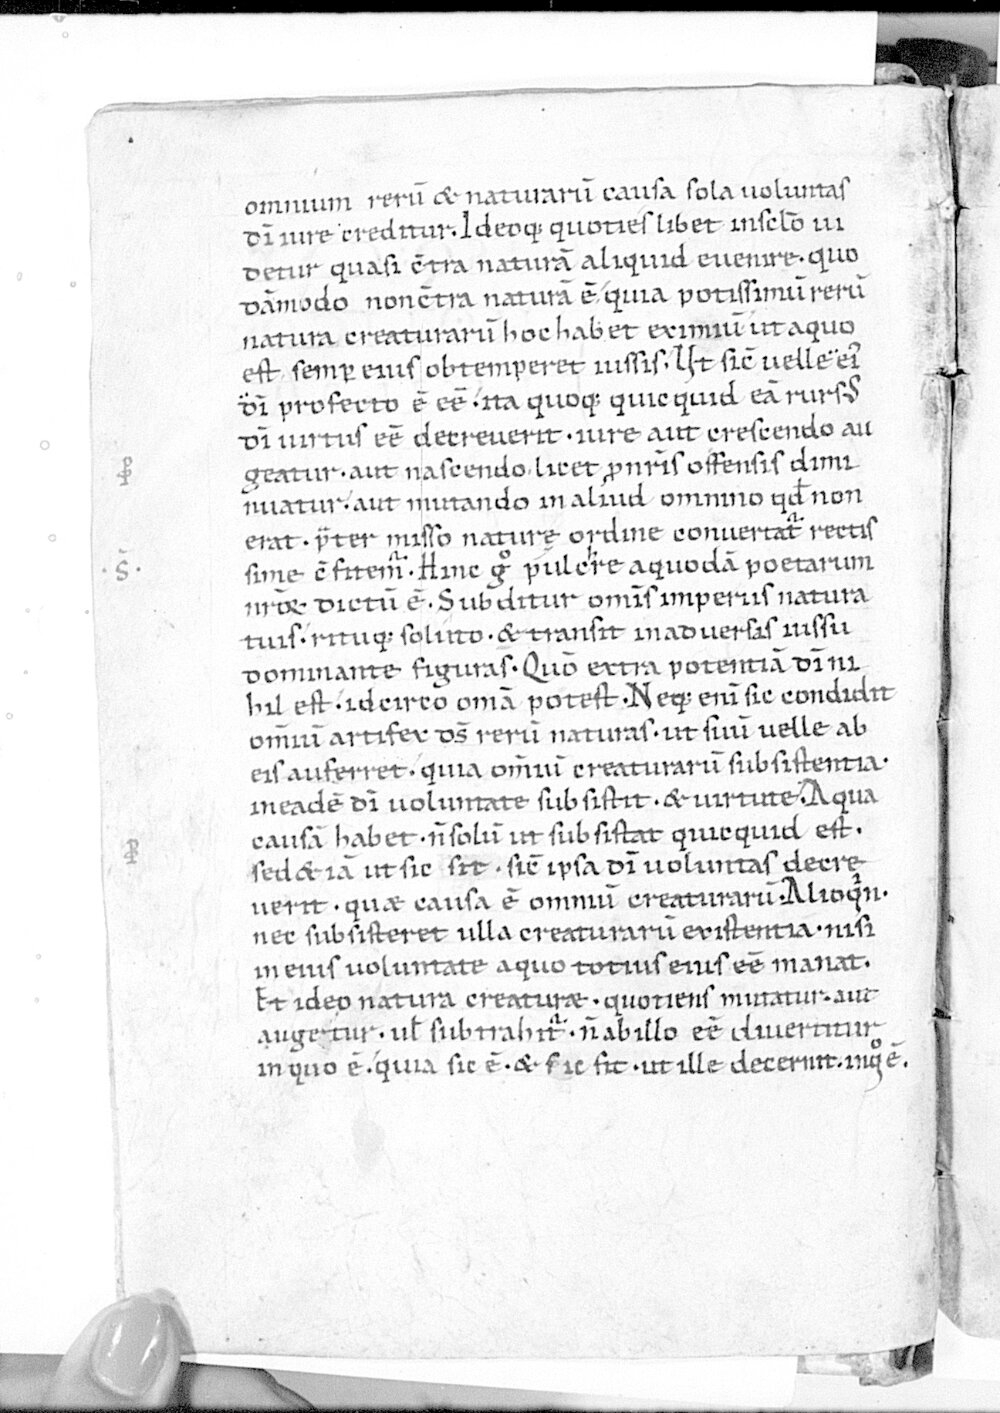 omnium rerū & naturarū causa sola uoluntas
dī iure creditur. Ideoq; quotiens libet inseclō ui
detur quasi c̄tra naturā aliquid euenire. quo
dāmodo non c̄tra naturā ē, quia potissimū rerū
natura creaturarū hoc habet eximiū ut aquo
est, semp eius obtemperet iussis. Ut sic̄ uelle ei
dī profecto ē eē. ita quoq; quicquid eā rursus
dī uirtus eē decreuerit. iure aut crescendo au
geatur. aut nascendo, licet p nr̄is offensis dimi
nuatur. aut mutando in aliud omnino qd̄ non
erat. p̄ter misso naturę ordine conuertat rectis
sime c̄fitem. Hinc gͦ pulcre aquodā poetarum
nr̄oꝝ dictū ē. Subditur omīs imperiis natura
tuis. rituq; soluto. & transit inaduersas iussu
dominante figuras. Quō extra potentiā dī ni
hil est. idcirco omā potest. Neq; enī sic condidit
om̄iū artifex ds̄ rerū naturas. ut suū uelle ab
eis auferret. quia om̄iū creaturarū subsistentia.
ineadē dī uoluntate subsistit. & uirtute. A qua
causā habet. n̄ solū ut subsistat quicquid est.
sed & iā ut sic sit. sic̄ ipsa dī uoluntas decre
uerit. quæ causa ē omniū creaturarū. Alioqn.
nec subsisteret ulla creaturarū existentia. nisi
in eius uoluntate aquo totius eius eē manat.
Et ideo natura creaturæ. quotiens mutatur. aut
augetur. ul̄ subtrahit. n̄ abillo eē diuertitur
in quo ē. quia sic ē. & sic fit. ut ille decernit. inqͦ ē.
S̄